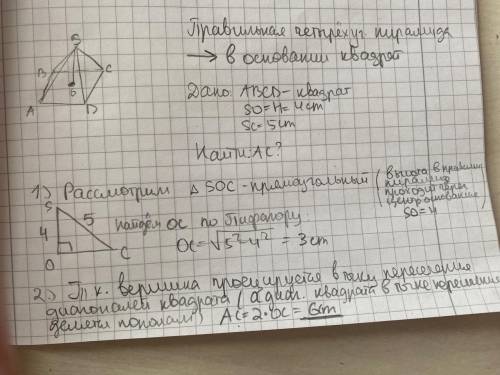 Правильная четырёхуг. пирамида
→ в основании квадрат
S
B
C
O
A
D
Дано: ABCD - квадрат
SO = H = 4 cm
SC = 5 cm
Найти: AC?
1) Рассмотрим △ SOC - прямоугольный (высота в правильн.
пирамиде
проходит через
центр основания)
SO = H
S
4
5
O
C
найдём OC по Пифагору.
OC = √5²-4² = 3 cm
2) Т. к. вершина проецируется в точку пересечения
диагоналей квадрата (а диаг. квадрата в точке пересечения
делятся пополам) AC = 2·OC = 6 cm